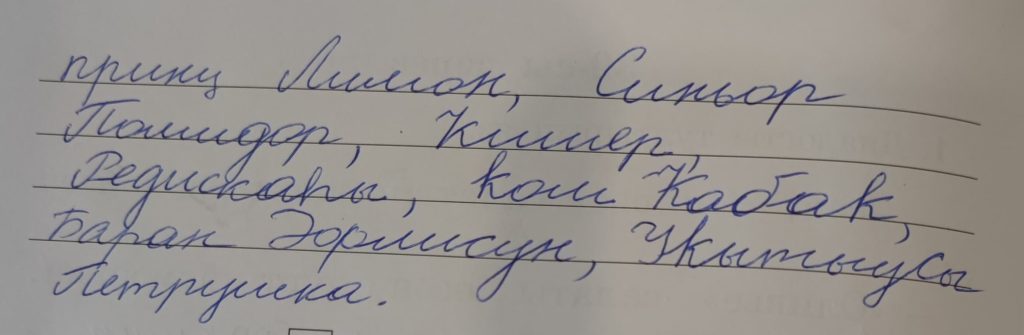 принц Лимон, Синьор
Помидор, Кишер,
Редискапы, кош Кабак,
Баран Әфлисун, Укытыусы
Петрушка.